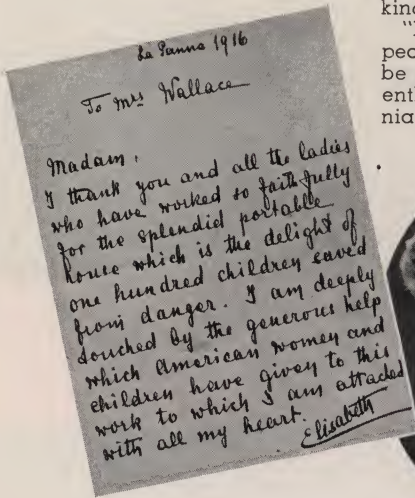 La Panne 1916
To Mrs Wallace
Madam,
I thank you and all the ladies
who have worked so faithfully
for the splendid portable
house which is the delight of
one hundred children saved
from danger. I am deeply
touched by the generous help
which American women and
children have given to this
work to which I am attached
with all my heart.
Elisabeth
kind
peo
be
enth
nia